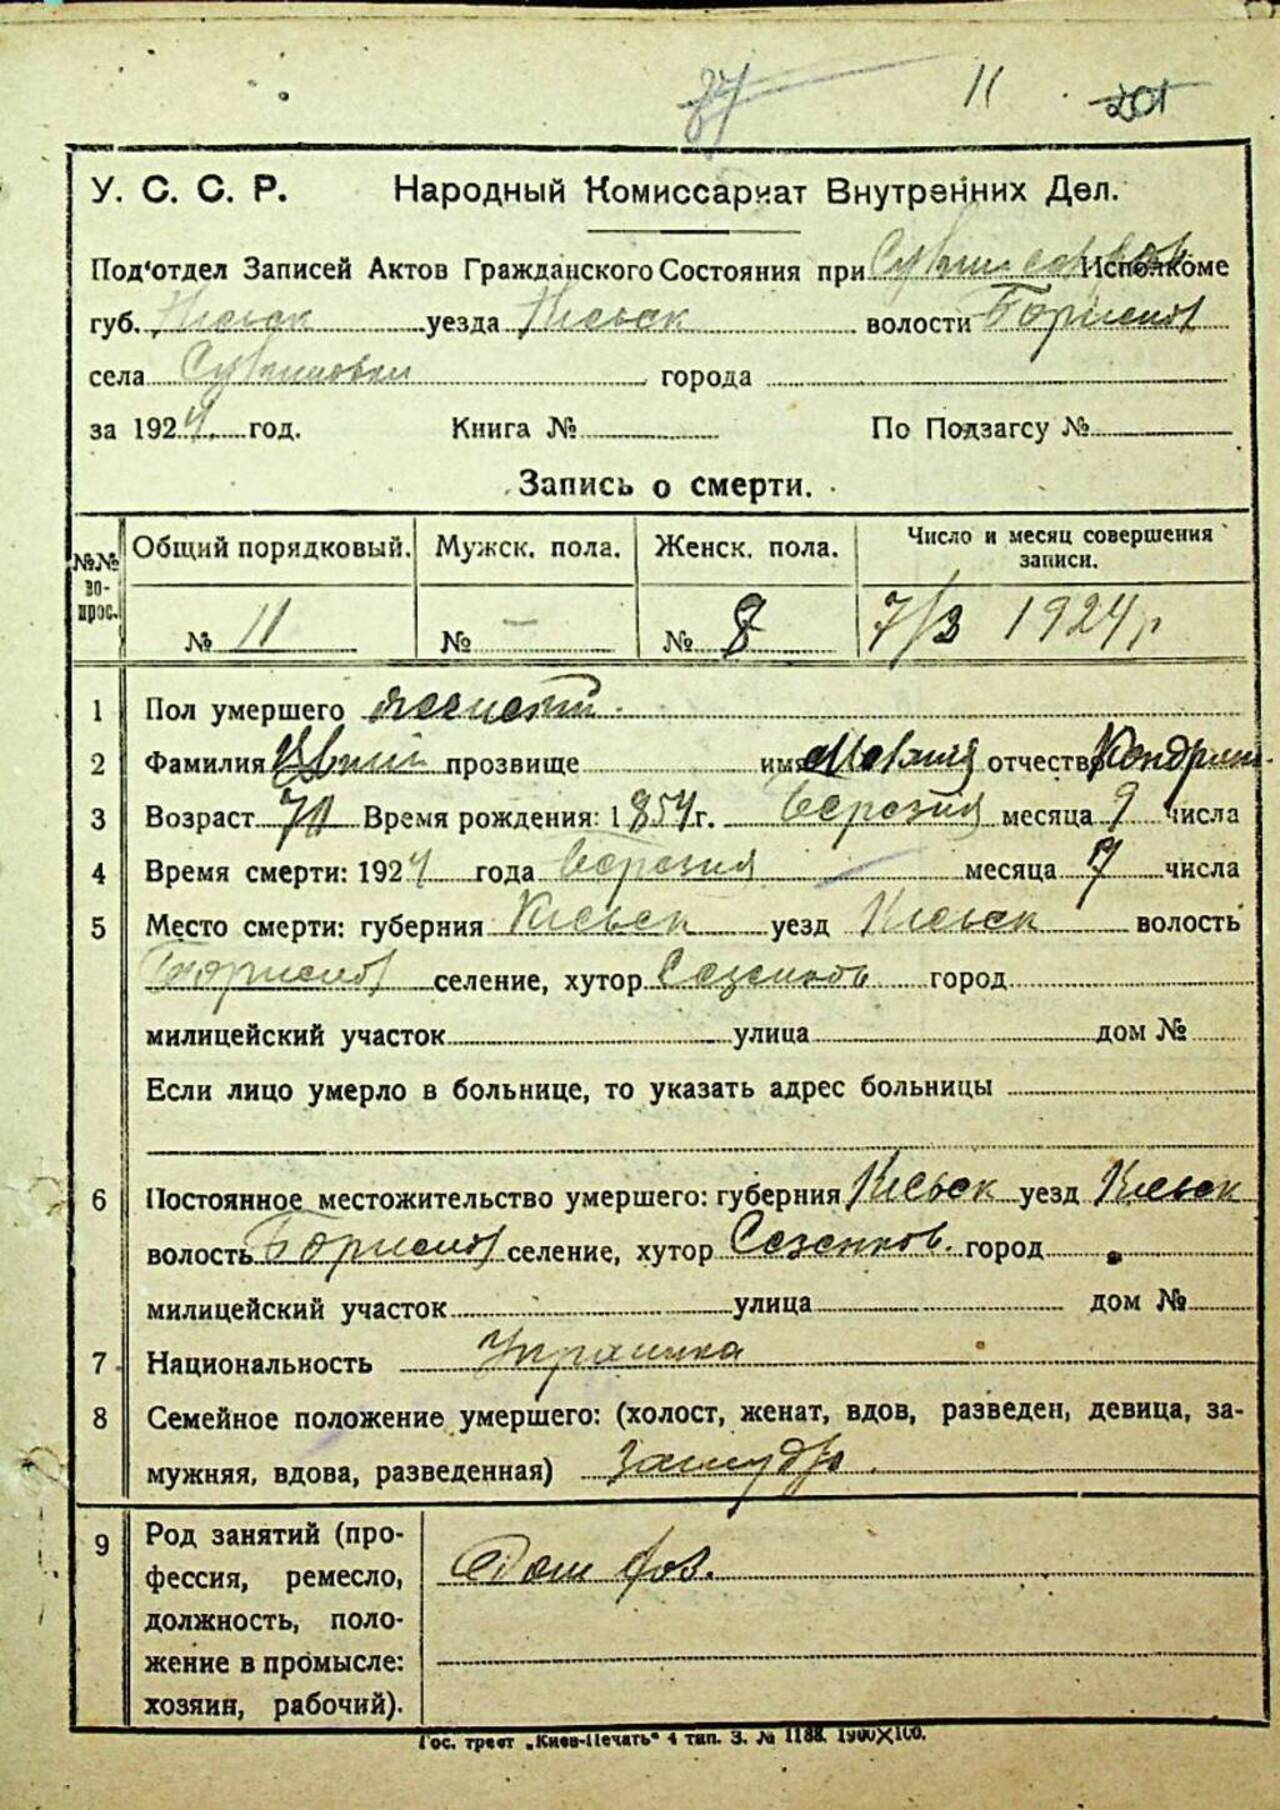 11 201
У. С. С. Р. Народный Комиссариат Внутренних Дел.
Под'отдел Записей Актов Гражданского Состояния при Исполкоме
губ. Киевск уезда Киевск волости Борисп
села города
за 1924 год. Книга № По Подзагсу №
Запись о смерти.
№№ вопрос. Общий порядковый. Мужск. пола. Женск. пола. Число и месяц совершения записи.
№ 11 № — № 8 7/3 1924 р
1 Пол умершего
2 Фамилия прозвище имя отчество Кондрат
3 Возраст 70 Время рождения: 1854 г. березня месяца 9 числа
4 Время смерти: 1924 года березня месяца 7 числа
5 Место смерти: губерния Киевск уезд Киевск волость
селение, хутор Сезенков город
милицейский участок улица дом №
Если лицо умерло в больнице, то указать адрес больницы
6 Постоянное местожительство умершего: губерния Киевск уезд Киевск
волость селение, хутор Сезенков. город
милицейский участок улица дом №
7 Национальность Украинка
8 Семейное положение умершего: (холост, женат, вдов, разведен, девица, за-
мужняя, вдова, разведенная)
9 Род занятий (про-
фессия, ремесло,
должность, поло-
жение в промысле:
хозяин, рабочий).
Дом хоз.
Гос. трест „Киев-Печать" 4 тип. З. № 1188. 1900X100.